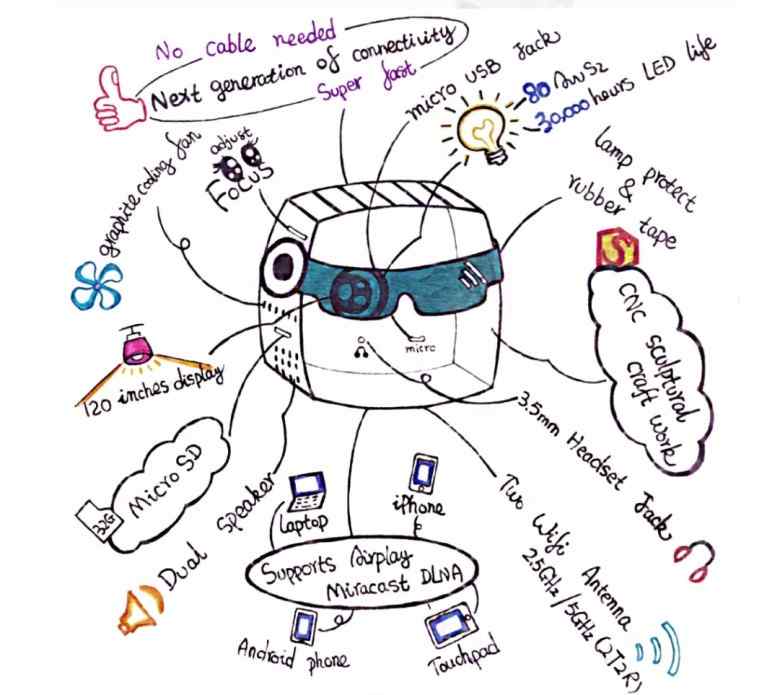 No cable needed
Next generation of connectivity
Super fast
micro USB Jack
80 Aws2
30,000 hours LED life
lamp protect
&
rubber tape
graphite coding fan
adjust
Focus
S
CNC sculptural
craft work
micro
120 inches display
3.5mm Headset Jack
Micro SD
32G
Dual Speaker
Laptop
iPhone
Two Wifi Antenna
25GHz/5GHz (2T2R)
Supports Airplay
Miracast DLNA
Android phone
Touchpad